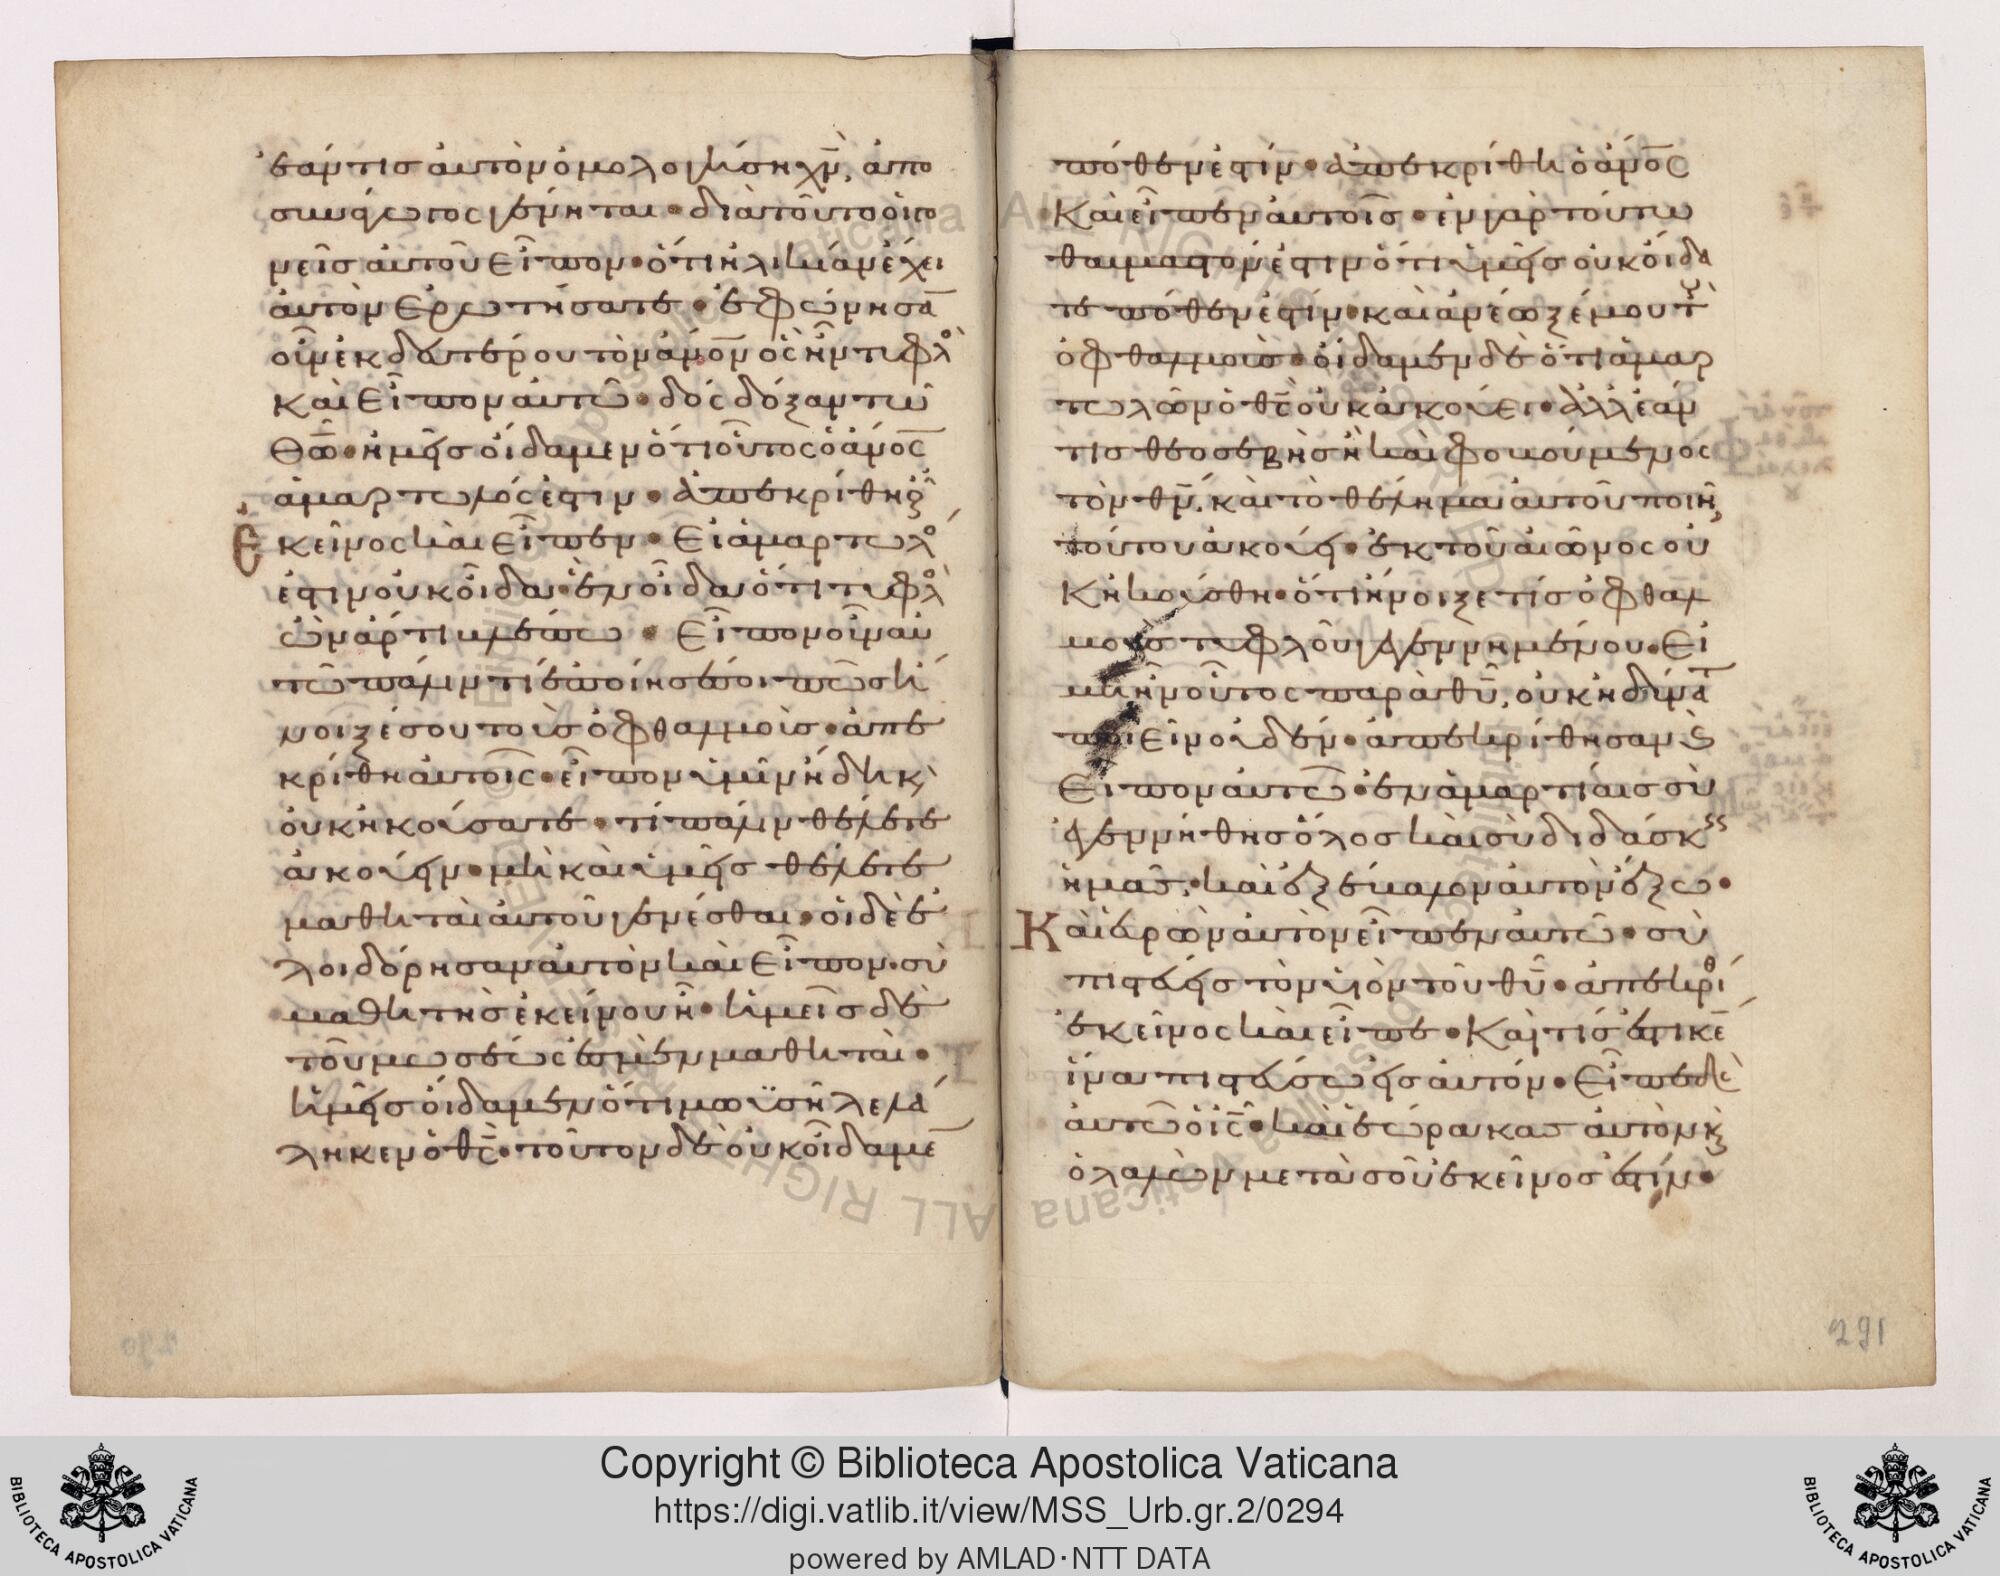 ἐάν τις αὐτὸν ὁμολογήση χ̅ν̅, ἀπο
συνάγωγος γένηται · διατοῦτο οἱ γο
νεῖς αὐτοῦ εἶπον · ὅτι ἡλικίαν ἔχει
αὐτὸν ἐρωτήσατε · ἐφώνησα̅
οὖν ἐκ δευτέρου τὸν ἄν̅ο̅ν̅ ὃς ἦν τυφλὸ
καὶ εἶπον αὐτῶ · δὸς δόξαν τῶ
θ̅ῶ̅ · ἡμεῖς οἴδαμεν ὅτι οὗτος ὁ ἄν̅ο̅ς̅
ἁμαρτωλός ἐστιν · ἀπεκρίθη οὖ
ἐκεῖνος καὶ εἶπεν · εἰ ἁμαρτωλό
ἐστιν οὐκ οἶδα · ἓν οἶδα ὅτι τυφλὸ
ὢν ἄρτι βλέπω · εἶπον οὖν αὐ
τῶ πάλιν τί ἐποίησέ σοι πῶς ἤ
νοιξέ σου τοὺς ὀφθαλμούς · ἀπε
κρίθη αὐτοῖς · εἶπον ὑμῖν ἤδη κ,
οὐκ ἠκούσατε · τί πάλιν θέλετε
ἀκούειν · μὴ καὶ ὑμεῖς θέλετε
μαθηταὶ αὐτοῦ γενέσθαι · οἱ δὲ ἐ
λοιδόρησαν αὐτὸν καὶ εἶπον · σὺ
μαθητὴς ἐκείνου εἶ · ἡμεῖς δὲ
τοῦ μωσέως ἐσμὲν μαθηταί ·
ἡμεῖς οἴδαμεν ὅτι μωϋσῆ λελά
ληκεν ὁ θ̅ς̅ · τοῦτον δὲ οὐκ οἴδαμε̅
πόθεν ἐστίν · ἀπεκρίθη ὁ ἄν̅ο̅ς̅
καὶ εἶπεν αὐτοῖς · ἐν γὰρ τούτω
θαυμαστόν ἐστιν ὅτι ὑμεῖς οὐκ οἴδα
τε πόθεν ἐστίν · καὶ ἀνέωξέ μου τ̅
ὀφθαλμούς · οἴδαμεν δὲ ὅτι ἁμαρ
τωλῶν ὁ θ̅ς̅ οὐκ ἀκούει · ἀλλ' ἐάν
τις θεοσεβὴς ἦ καὶ φοβούμενος
τὸν θ̅ν̅, καὶ τὸ θέλημα αὐτοῦ ποιῆ,
τούτου ἀκούει · ἐκ τοῦ αἰῶνος οὐ
κ ἠκούσθη · ὅτι ἤνοιξέ τις ὀφθαλ
μοὺς τυφλοῦ γεγεννημένου · εἰ
μὴ ἦν οὗτος παρὰ θ̅υ̅, οὐκ ἠδύνατ
ποιεῖν οὐδέν · ἀπεκρίθησαν κ
εἶπον αὐτῶ · ἐν ἁμαρτίαις σὺ
ἐγεννήθης ὅλος καὶ σὺ διδάσκεις
ἡμᾶς, · καὶ ἐξέβαλον αὐτὸν ἔξω ·
Καὶ εὑρὼν αὐτὸν εἶπεν αὐτῶ · σὺ
πιστεύεις τὸν υἱὸν τοῦ θ̅υ̅ · ἀπεκρίθ
ἐκεῖνος καὶ εἶπε · καὶ τίς ἐστι κ̅ε̅
ἵνα πιστεύσω εἰς αὐτόν · εἶπε δὲ
αὐτῶ ὁ ι̅ς̅ · καὶ ἑώρακας αὐτὸν κ
ὁ λαλῶν μετὰ σοῦ ἐκεῖνος ἐστίν ·
291
Copyright © Biblioteca Apostolica Vaticana
https://digi.vatlib.it/view/MSS_Urb.gr.2/0294
powered by AMLAD·NTT DATA
BIBLIOTECA APOSTOLICA VATICANA
BIBLIOTECA APOSTOLICA VATICANA